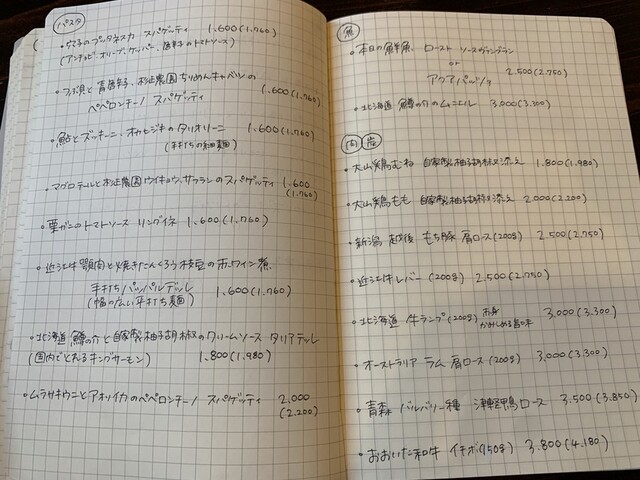 パスタ
・サンマ子のプッタネスカ スパゲッティ 1.600(1.760)
(アンチョビ、オリーブ、ケッパー、唐辛子のトマトソース)
・つぶ貝と青唐辛子、杉正農園ちりめんキャベツの
ペペロンチーノ スパゲッティ 1.600(1.760)
・鮎とズッキーニ、オカヒジキのタリオリーニ 1.600(1.760)
(手打ちの細麺)
・マグロテールと杉正農園ウイキョウ、サフランのスパゲッティ 1.600
(1.760)
・栗ガニのトマトソース リングイネ 1.600(1.760)
・近江牛 顎肉と焼きたんくろう枝豆の赤ワイン煮
手打ちパッパルデッレ 1.600(1.760)
(幅の広い平打ち麺)
・北海道 鱒の介と自家製柚子胡椒のクリームソース タリアテッレ
(国内でとれるキングサーモン) 1.800(1.980)
・ムラサキウニとアオリイカのペペロンチーノ スパゲッティ 2.000
(2.200)
魚
・本日の鮮魚 ロースト ソースヴァンブラン
or
アクアパッツァ 2.500(2.750)
・北海道 鱒の介のムニエル 3.000(3.300)
肉 炭
・大山鶏むね 自家製柚子胡椒添え 1.800(1.980)
・大山鶏もも 自家製柚子胡椒添え 2.000(2.200)
・新潟 越後 もち豚 肩ロース(200g) 2.500(2.750)
・近江牛レバー(200g) 2.500(2.750)
・北海道 牛ランプ(200g) 赤身 かみしめる旨味 3.000(3.300)
・オーストラリア ラム 肩ロース(200g) 3.000(3.300)
・青森 バルバリー種 津軽鴨ロース 3.500(3.850)
・おおいた和牛 イチボ(150g) 3.800(4.180)